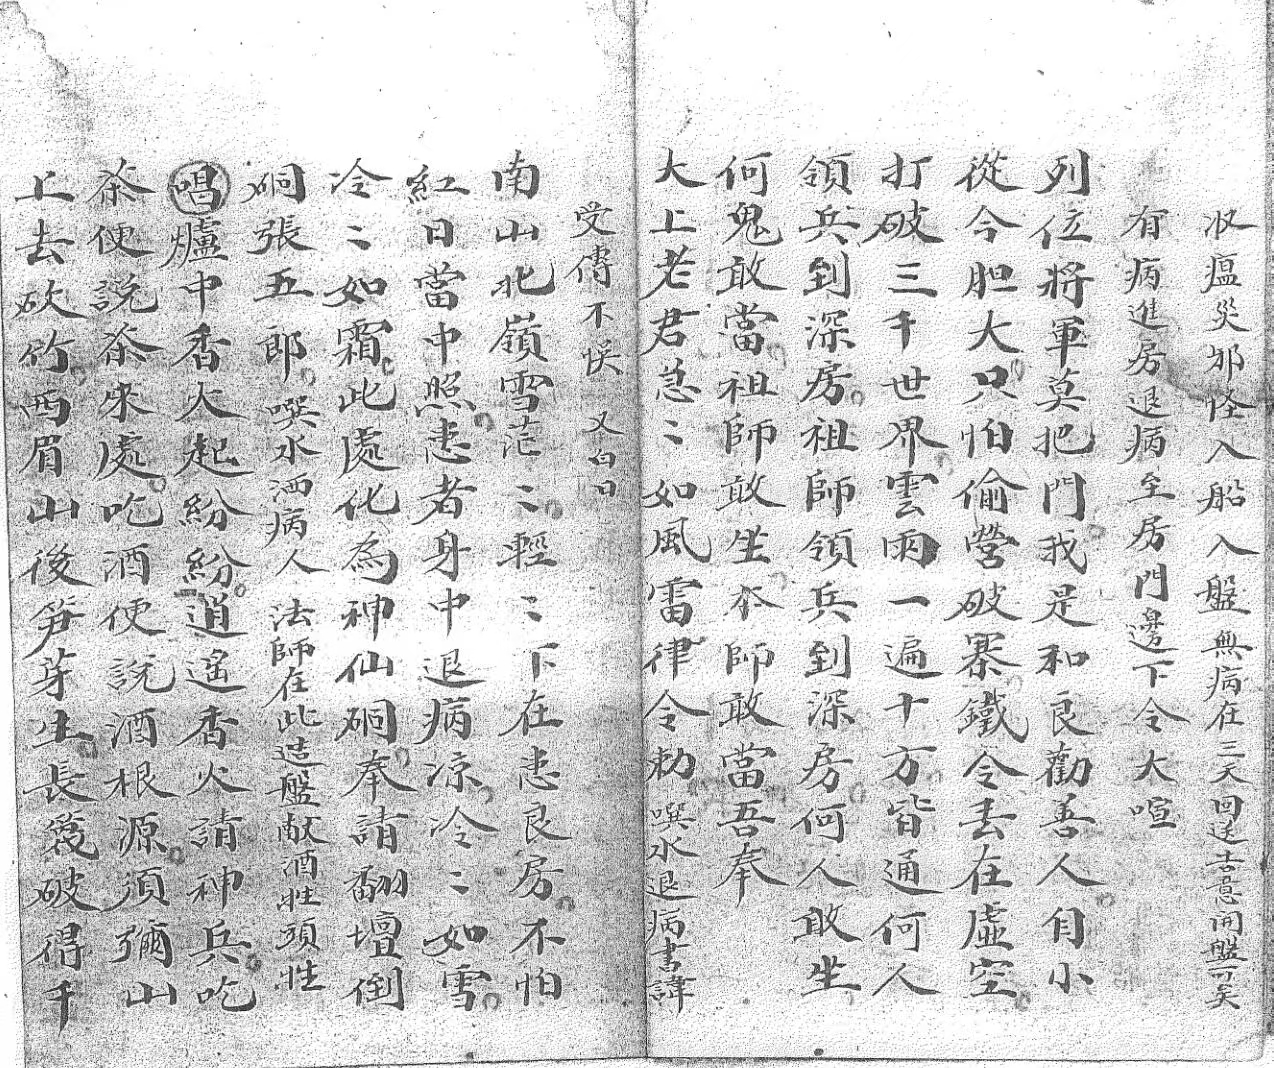 收瘟災邪怪入船入盤無病在三天回送吉意開盤可矣
有病進房退病至房門邊下令大喧
列位將軍莫把門我是和良勸善人自小
從今胆大只怕偷營破寨鐵令去在虛空
打破三千世界雲雨一遍十方皆通何人
領兵到深房祖師領兵到深房何人敢坐
何鬼敢當祖師敢坐本師敢當吾奉
大上老君急〻如風雷律令勅噀水退病書諱
受傳不悞 又白曰
南山北嶺雪茫〻輕〻下在患良房不怕
紅日當中照患者身中退病凉冷〻如雪
冷〻如霜此處化為神仙硐奉請翻壇倒
硐張五郎噀水洒病人 法師在此造盤献酒牲頭牲
唱爐中香火起紛紛逍遙香火請神兵吃
茶便說茶來處吃酒便說酒根源須彌山
上去砍竹西眉山後笋芽生長篾破得千